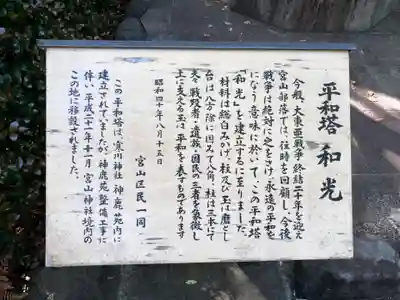 平和塔 和光
今般、大東亜戦争終結二十年を迎え
宮山部落では、往時を回顧し、今後
戦争は絶対に之をさけ、永遠の平和を
になう、意味に於いて、この平和塔
「和光」を建立するに至りました。
材料は総白みかげ、柱及び玉は磨とし
台は八方除に因みて八角、柱は三本にて
夫々戦歿者、遺族、国民の三者を象徴し
上に支える玉は、平和を表すものであります
昭和四十年八月十五日
宮山区民一同
この平和塔は、寒川神社 神鹿苑内に
建立されていましたが、神鹿苑整備工事に
伴い 平成二十一年十一月 宮山神社境内の
この地に移設されました。